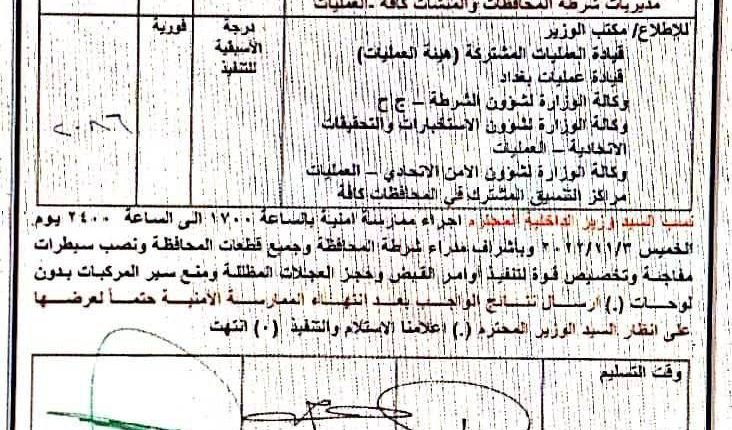 مديريات شرطة المحافظات والمنشات كافة -العمليات
للإطلاع/ مكتب الوزير
قيادة العمليات المشتركة (هيئة العمليات)
قيادة عمليات بغداد
وكالة الوزارة لشؤون الشرطة – ج ح
وكالة الوزارة لشؤون الاستخبارات والتحقيقات
الاتحادية – العمليات
وكالة الوزارة لشؤون الامن الاتحادي – العمليات
مراكز التنسيق المشترك في المحافظات كافة
درجة
الأسبقية
للتنفيذ
فورية
٢٠٨٦
نسب السيد وزير الداخلية المحترم اجراء ممارسة امنية بالساعة ١٧٠٠ الى الساعة ٢٤٠٠ يوم
الخميس ٢٠٢٢/١١/٣ وباشراف مدراء شرطة المحافظة وجميع قطعات المحافظة ونصب سيطرات
مفاجئة وتخصيص قوة لتنفيذ أوامر القبض وحجز العجلات المظللة ومنع سير المركبات بدون
لوحات (.) ارسال نتائج الواجب بعد انتهاء الممارسة الأمنية حتماً لعرضها
على انظار السيد الوزير المحترم (.) اعلامنا الاستلام والتنفيذ (٠) انتهت
وقت التسليم